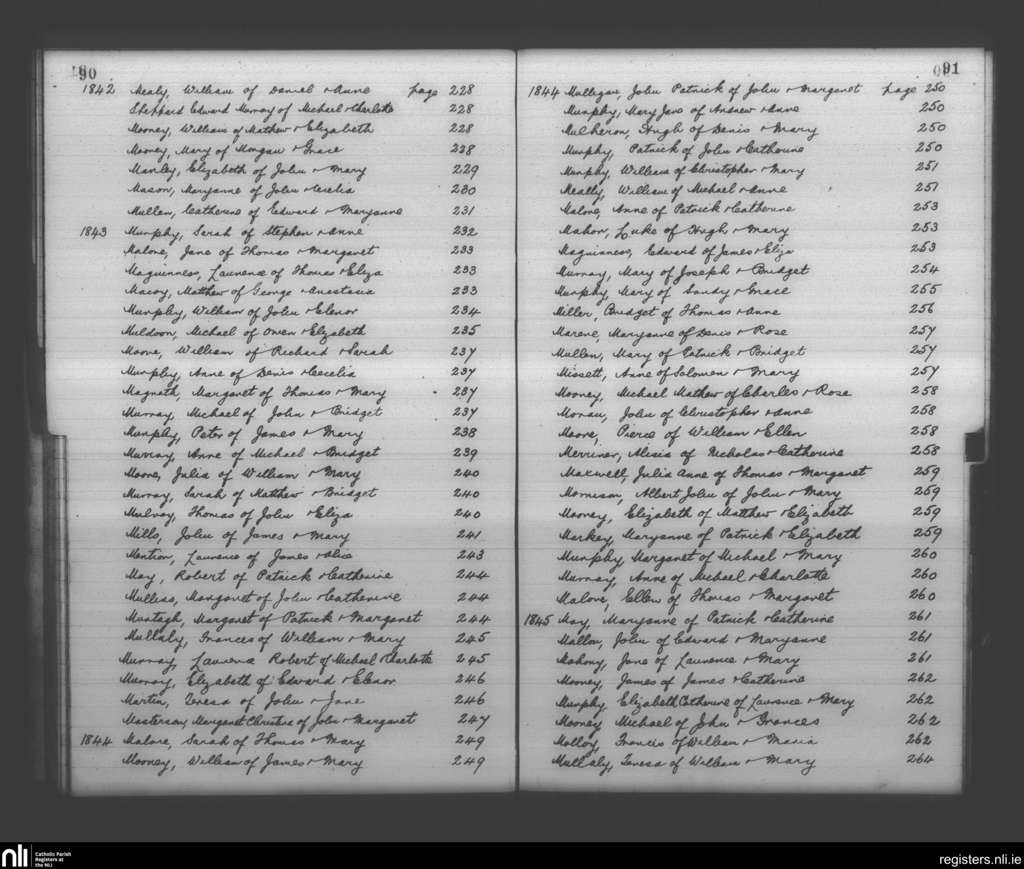 90
1842 Mealy, William of Daniel & Anne page 228
Sheppard Edward Murray of Michael & Charlotte 228
Mooney, William of Mathew & Elizabeth 228
Mooney, Mary of Morgan & Grace 228
Manley, Elizabeth of John & Mary 229
Mason, Maryanne of John & Cecelia 230
Mullen, Catherine of Edward & Maryanne 231
1843 Murphy, Sarah of Stephen & Anne 232
Malone, Jane of Thomas & Margaret 233
Maguinness, Laurence of Thomas & Eliza 233
Macoy, Matthew of George & Anastasia 233
Murphy, William of John & Elenor 234
Muldoon, Michael of Owen & Elizabeth 235
Moore, William of Richard & Sarah 237
Murphy, Anne of Denis & Cecelia 237
Magrath, Margaret of Thomas & Mary 237
Murray, Michael of John & Bridget 237
Murphy, Peter of James & Mary 238
Murray, Anne of Michael & Bridget 239
Moore, Julia of William & Mary 240
Murray, Sarah of Matthew & Bridget 240
Mulvay, Thomas of John & Eliza 240
Mills, John of James & Mary 241
Mention, Laurence of James & Alice 243
May, Robert of Patrick & Catherine 244
Mulliss, Margaret of John & Catherine 244
Murtagh, Margaret of Patrick & Margaret 244
Mullaly, Frances of William & Mary 245
Murray, Laurence Robert of Michael & Charlotte 245
Murray, Elizabeth of Edward & Elenor 246
Martin, Teresa of John & Jane 246
Masterson, Margaret Christine of John & Margaret 247
1844 Malone, Sarah of Thomas & Mary 249
Mooney, William of James & Mary 249
91
1844 Mulligan, John Patrick of John & Margaret page 250
Murphy, Mary Jane of Andrew & Anne 250
Mulheron, Hugh of Denis & Mary 250
Murphy, Patrick of John & Catherine 250
Murphy, William of Christopher & Mary 251
Meally, William of Michael & Anne 251
Malone, Anne of Patrick & Catherine 253
Mahon, Luke of Hugh & Mary 253
Maguinness, Edward of James & Eliza 253
Murray, Mary of Joseph & Bridget 254
Murphy, Mary of Sandy & Grace 255
Miller, Bridget of Thomas & Anne 256
Marene, Maryanne of Denis & Rose 257
Mullen, Mary of Patrick & Bridget 257
Missett, Anne of Solomon & Mary 257
Mooney, Michael Mathew of Charles & Rose 258
Moran, John of Christopher & Anne 258
Moore, Pierce of William & Ellen 258
Merriner, Alicia of Nicholas & Catherine 258
Maxwell, Julia Anne of Thomas & Margaret 259
Morrison, Albert John of John & Mary 259
Mooney, Elizabeth of Matthew & Elizabeth 259
Markey, Maryanne of Patrick & Elizabeth 259
Murphy, Margaret of Michael & Mary 260
Murray, Anne of Michael & Charlotte 260
Malone, Ellen of Thomas & Margaret 260
1845 May, Maryanne of Patrick & Catherine 261
Mallon, John of Edward & Maryanne 261
Mahony, Jane of Laurence & Mary 261
Mooney, James of James & Catherine 262
Murphy Elizabeth Catherine of Laurence & Mary 262
Mooney Michael of John & Frances 262
Molloy, Francis of William & Maria 262
Mullaly, Teresa of William & Mary 264
nli Catholic Parish
Registers at
the NLI
registers.nli.ie